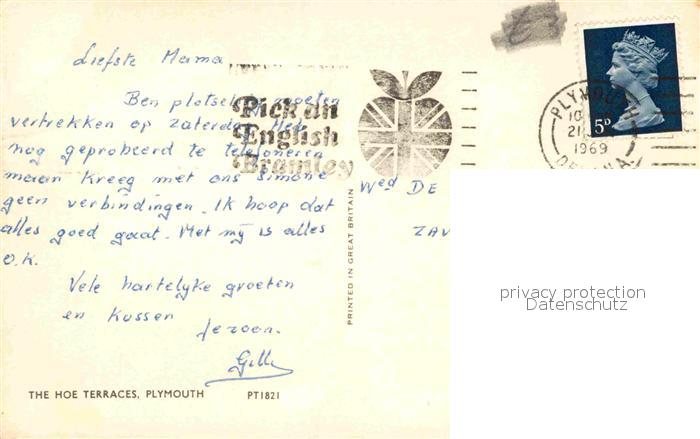 Liefste Mama
Ben plotseling moeten
vertrekken op zaterdag. Heb
nog geprobeerd te telefoneren
maar kreeg met ons Simone
geen verbindingen. Ik hoop dat
alles goed gaat. Met mij is alles
O.K.
Vele hartelyke groeten
en Kussen
Je zoon.
THE HOE TERRACES, PLYMOUTH PT1821
Pick an
English
Bramley
PRINTED IN GREAT BRITAIN
PLYMOUTH
10
21
1969
DEVON
5D
Wed DE
ZAV
privacy protection
Datenschutz